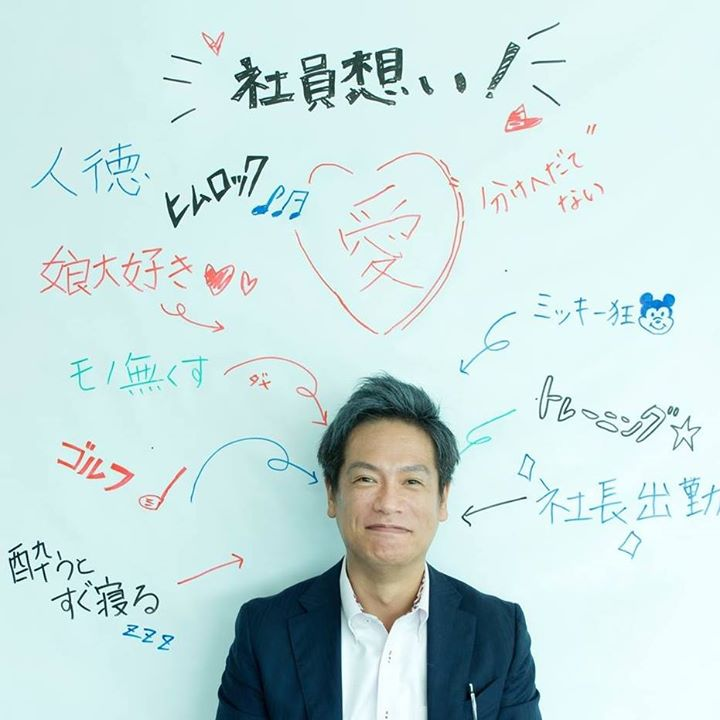 社員想い!
人徳
ヒムロック
愛
分けへだて
ない
娘大好き
ミッキー狂
モノ無くす
トレーニング
ゴルフ
社長出勤
酔うと
すぐ寝る
zzz